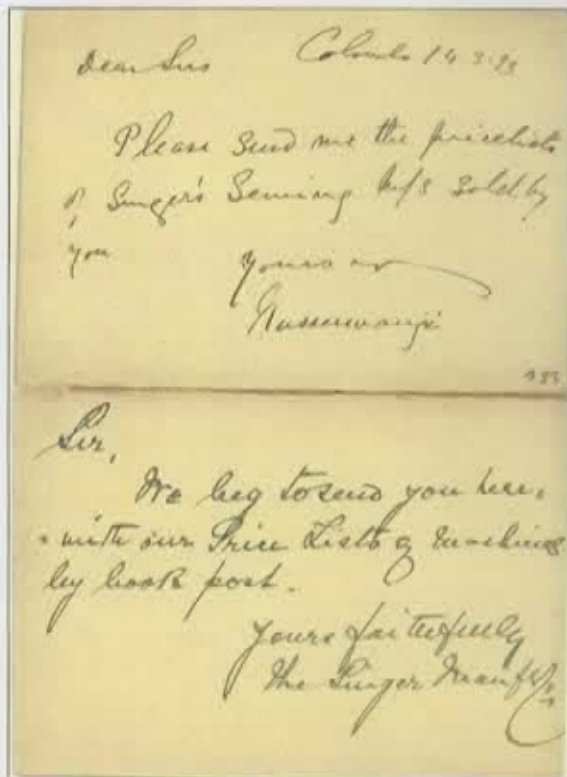 Dear Sirs Colombo 14 3.93
Please send me the pricelists
of Singer's Sewing M/s sold by
you
Yours
Nusserwanji
Sir,
We beg to send you here-
-with our Price Lists of Machines
by book post.
Yours faithfully
The Singer Manfg Co